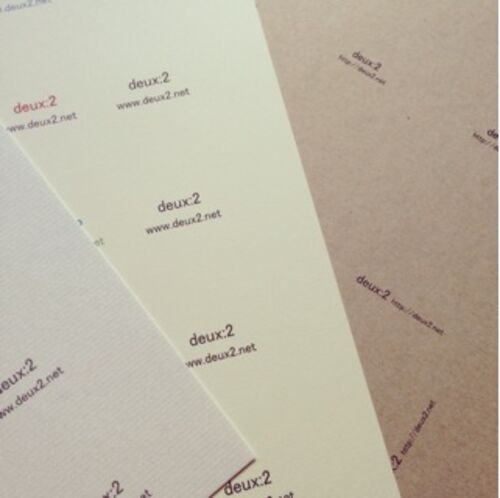 www.deux2.net
deux:2
http://deux2.net
deux:2
www.deux2.net
deux:2
www.deux2.net
deux:2
www.deux2.net
deux:2 http://deux2.net
deux:2
www.deux2.net
deux:2
www.deux2.net
:2 http://deux2.net
deux:2